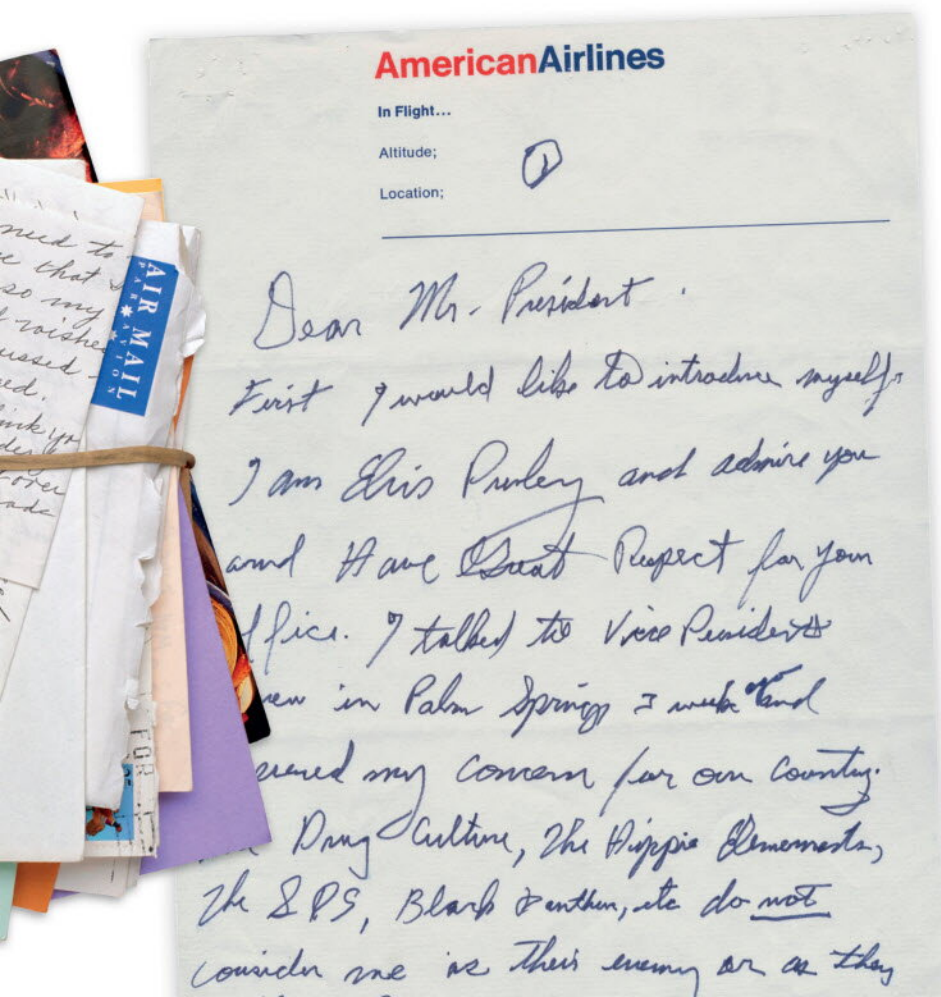 AmericanAirlines
In Flight...
Altitude;
1
Location;
Dear Mr. President.
First I would like to introduce myself.
I am Elvis Presley and admire you
and Have Great Respect for your
ffice. I talked to Vice President
new in Palm Springs 3 weeks ago and
my concern for our country.
Drug Culture, The Hippie Elements,
The SDS, Black Panthers, etc do not
consider me as their enemy or as they
need to
e that
so my
wishes
ussed
ed.
ink yo
over
ade
AIR MAIL
PAR AVION
FOR